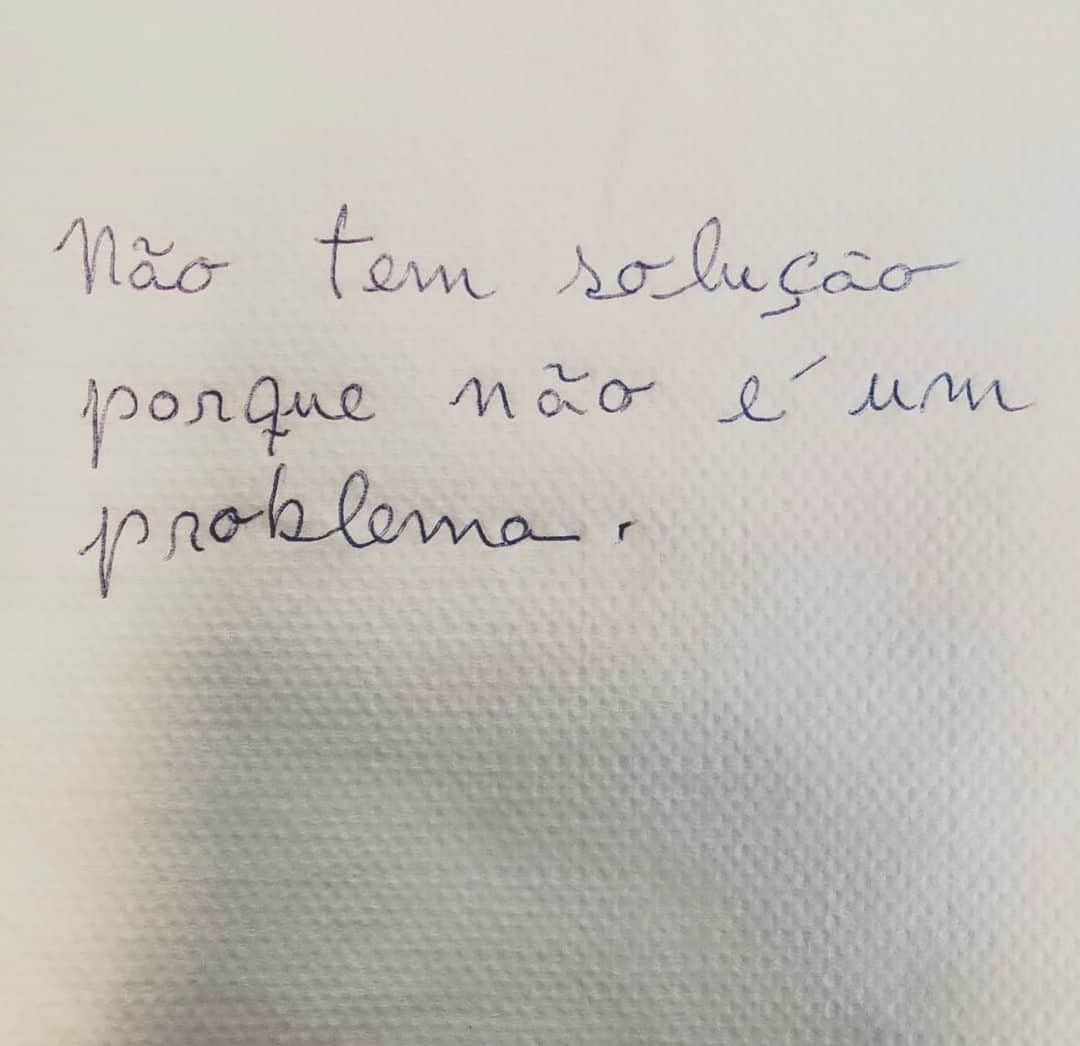 Não tem solução
porque não é um
problema.